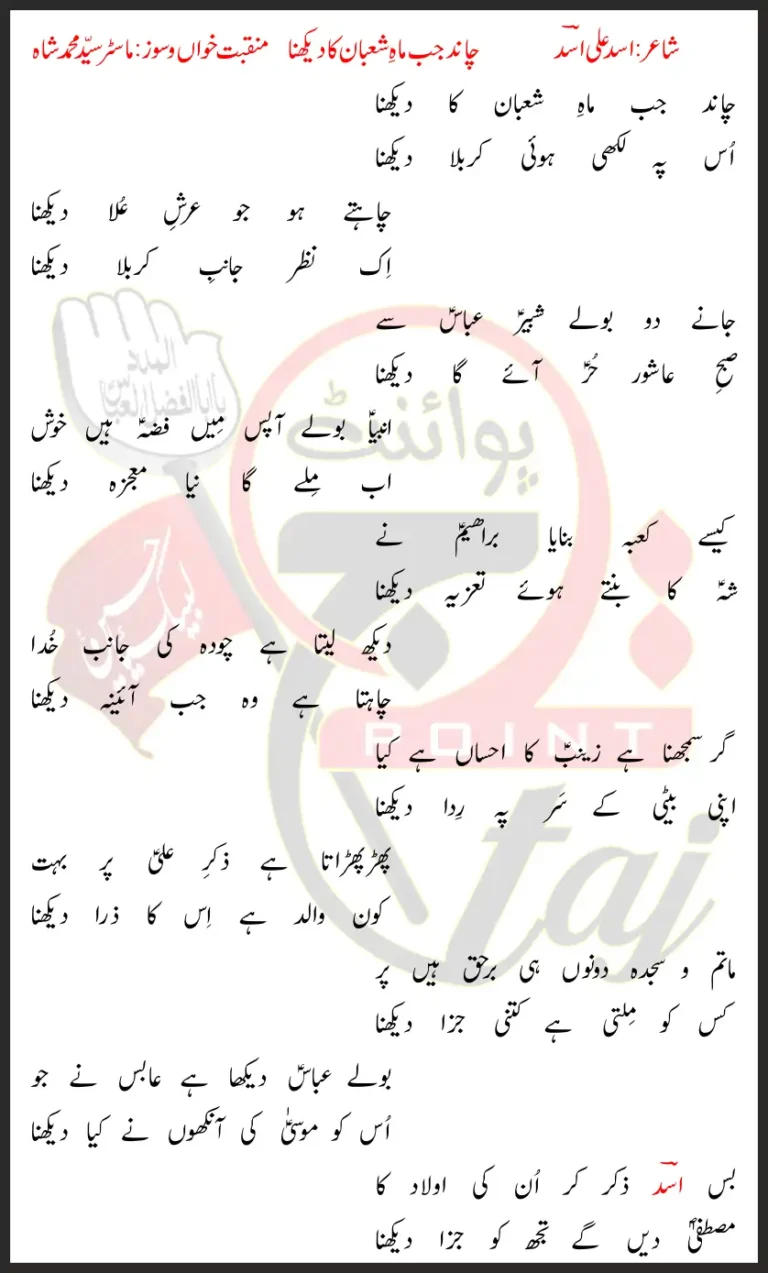 شاعر: اسد علی اسدؔ چاند جب ماہِ شعبان کا دیکھنا منقبت خواں و سوز: ماسٹر سیّد محمد شاہ
چاند جب ماہِ شعبان کا دیکھنا
اُس پہ لکھی ہوئی کربلا دیکھنا
چاہتے ہو جو عرشِ عُلا دیکھنا
اِک نظر جانبِ کربلا دیکھنا
جانے دو بولے شبیرؑ عباسؑ سے
صبحِ عاشور حُرؑ آئے گا دیکھنا
انبیاؑ بولے آپس مِیں فضہؑ ہیں خوش
اب مِلے گا نیا معجزہ دیکھنا
کیسے کعبہ بنایا براھیمؑ نے
شہؑ کا بنتے ہوئے تعزیہ دیکھنا
دیکھ لیتا ہے چودہ کی جانب خُدا
چاہتا ہے وہ جب آئینہ دیکھنا
گر سمجھنا ہے زینبؑ کا احساں ہے کیا
اپنی بیٹی کے سَر پہ رِدا دیکھنا
پھڑپھڑاتا ہے ذکرِ علیؑ پر بہت
کون والد ہے اِس کا ذرا دیکھنا
ماتم و سجدہ دونوں ہی برحق ہیں پر
کس کو مِلتی ہے کتنی جزا دیکھنا
بولے عباسؑ دیکھا ہے عابس نے جو
اُس کو موسیٰؑ کی آنکھوں نے کیا دیکھنا
بس اسدؔ ذکر کر اُن کی اولاد کا
مصطفیٰؐ دیں گے تجھ کو جزا دیکھنا
المدد
یا ابا الفضل العباس
لبیک یا حسین
پوائنٹ
تاج
POINT
taj